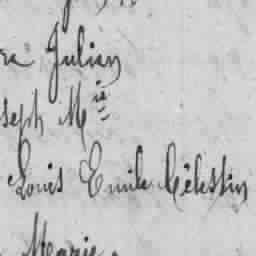 re Julien
seph M^ie
Louis Emile Célestin
Marie.